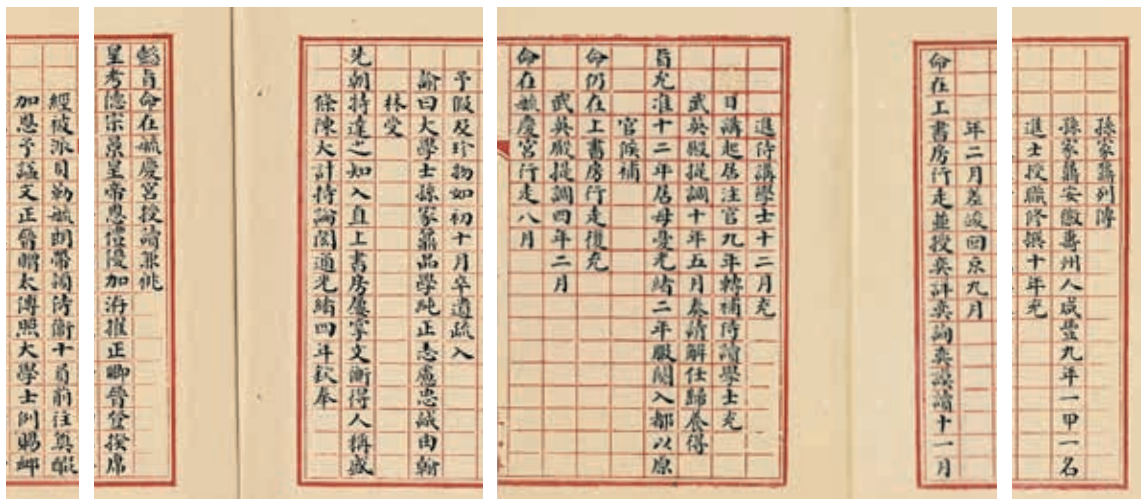 孫家鼐列傳
孫家鼐安徽壽州人咸豐九年一甲一名
進士授職修撰十年充
年二月差竣回京九月
命在上書房行走並授奕詳奕詢奕謨讀十一月
進侍講學士十二月充
日講起居注官九年轉補侍讀學士充
武英殿提調十年五月奏請解任歸養得
旨允准十二年居母憂光緒二年服闋入都以原
官候補
命仍在上書房行走復充
武英殿提調四年二月
命在毓慶宮行走八月
予假及珍物如初十月卒遺疏入
諭曰大學士孫家鼐品學純正志慮忠誠由翰
林受
先朝特達之知入直上書房屢掌文衡得人稱盛
條陳大計持論閎通光緒四年欽奉
懿旨命在毓慶宮授讀兼祧
皇考德宗景皇帝恩禮優加洊擢正卿晉登揆席
經被派貝勒毓朗帶領侍衛十員前往奠醊
加恩予諡文正晉贈太傅照大學士例賜卹